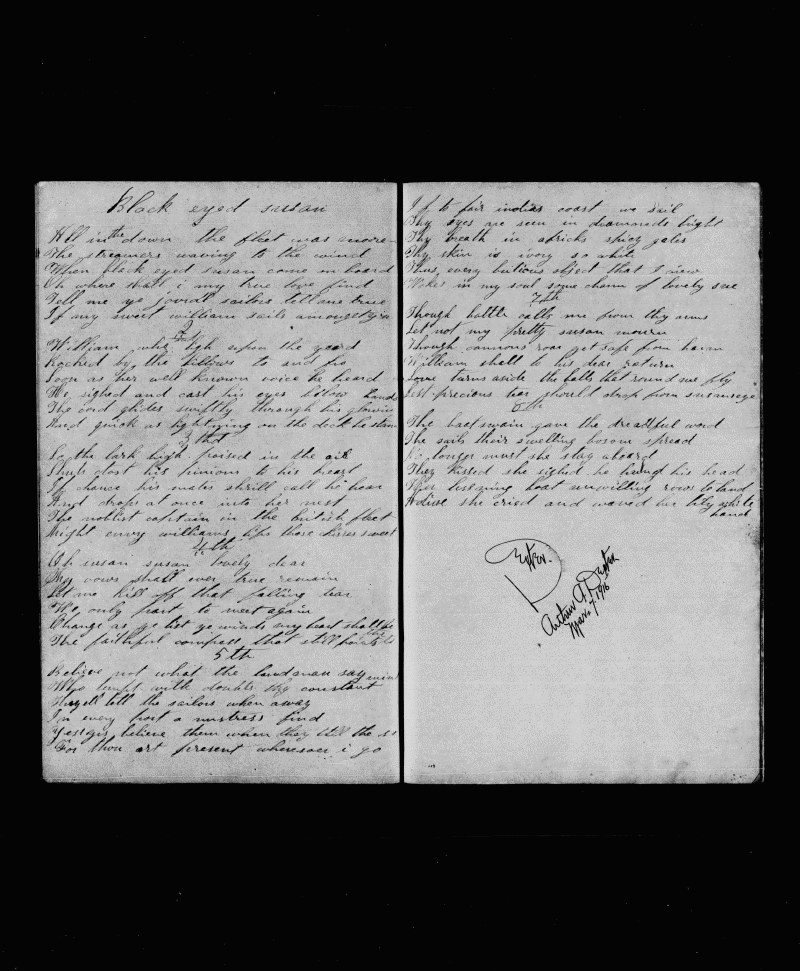 Black eyed susan
All in the down the fleet was moored
The streamers waving to the wind
When black eyed susan come on board
Oh where shall i my true love find
Tell me ye jovial sailors tell me true
If my sweet william sails amongst you
2
William who high upon the yard
Rocked by the billows to and fro
Soon as her well known voice he heard
He sighed and cast his eyes below
The cord glides swiftly through his glowing hands
And quick as lightning on the deck he stan
3 thd
So the lark high poised in the air
Shuts clost his pinions to his breast
If chance his mates shrill call he hear
And drops at once into her nest
The noblist captain in the british fleet
Might envy williams lips those kisses sweet
4th
Oh susan susan lovely dear
My vows shall ever true remain
Let me kiss off that falling tear
We only part to meet again
Change as ye list ye winds my heart shall be
The faithful compass that still points to
5th
Believe not what the landsman say
Who tempt with doubts thy constant mind
They'll tell the sailors when away
In every port a mistress find
Yes yes believe them when they tell the so
For thou art present wheresoer i go
If to fair indias coast we sail
Thy eyes are seen in diamonds bright
Thy breath in africks spicy gales
Thy skin is ivory so white
Thus every butious object that I view
Wakes in my soul some charm of lovely sue
7th
Though battle calls me from thy arms
Let not my pretty susan mourn
Though cannons roar yet safe from harm
William shall to his dear return
Love turns aside the balls that round me fly
Lest precious tear should drop from susans eye
8th
The boatswain gave the dreadful word
The sails their swelling bosom spread
No longer must she stay aboard
They kissed she sighed he hung his head
Her lessening boat unwilling rows to land
Adieu she cried and waved her lily white
hand
Dexter.
Arthur F. Dexter
Mar. 7 1916